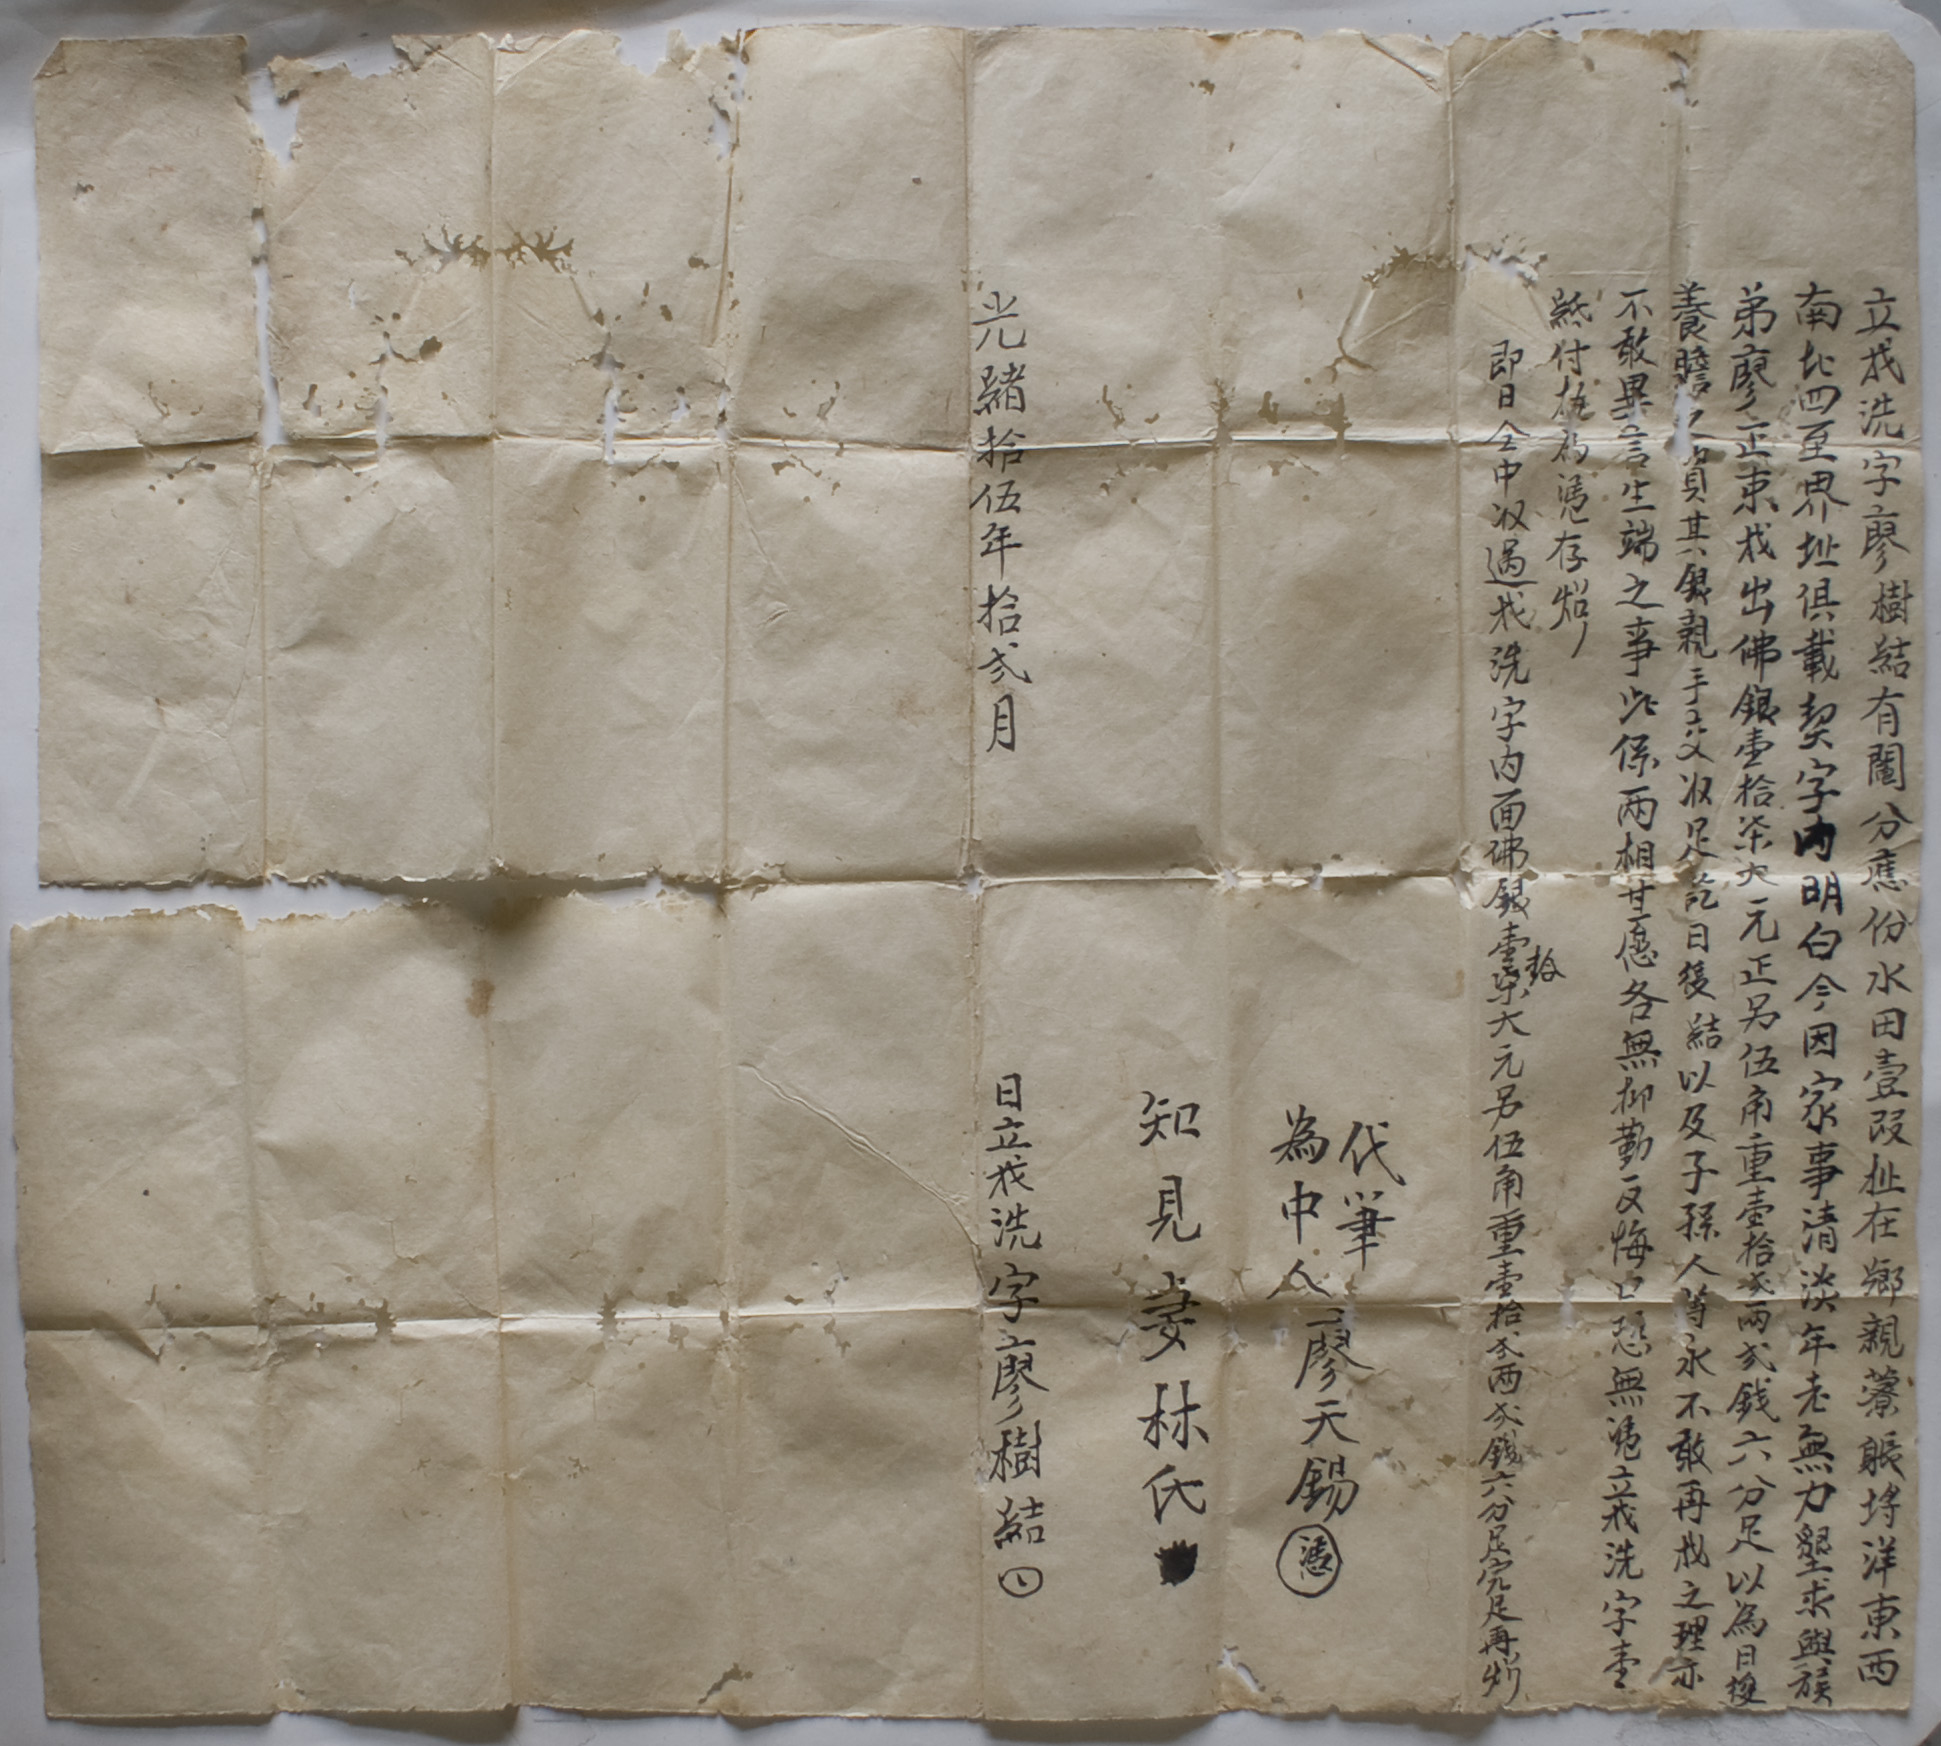 立找洗字廖樹結有鬮分應份水田壹段址在鄉親藔賬埓洋東西
南北四至界址俱載契字内明白今因家事清淡年老無力墾求與族
弟廖正束找出佛銀壹拾柒大元正另伍角重壹拾弍兩弍錢六分足以為日後
養贍之資其銀親手仝父收足訖日後結以及子孫人等永不敢再找之理亦
不敢異言生端之事此係兩相甘愿各無抑勤反悔口恐無憑立找洗字壹
紙付執為憑存炤
即日仝中收過找洗字内面佛銀壹拾柒大元另伍角重壹拾弍两弍錢六分足完足再炤
代筆
為中人廖天錫憑
知見妻林氏
光緒拾伍年拾弍月
日立找洗字廖樹結